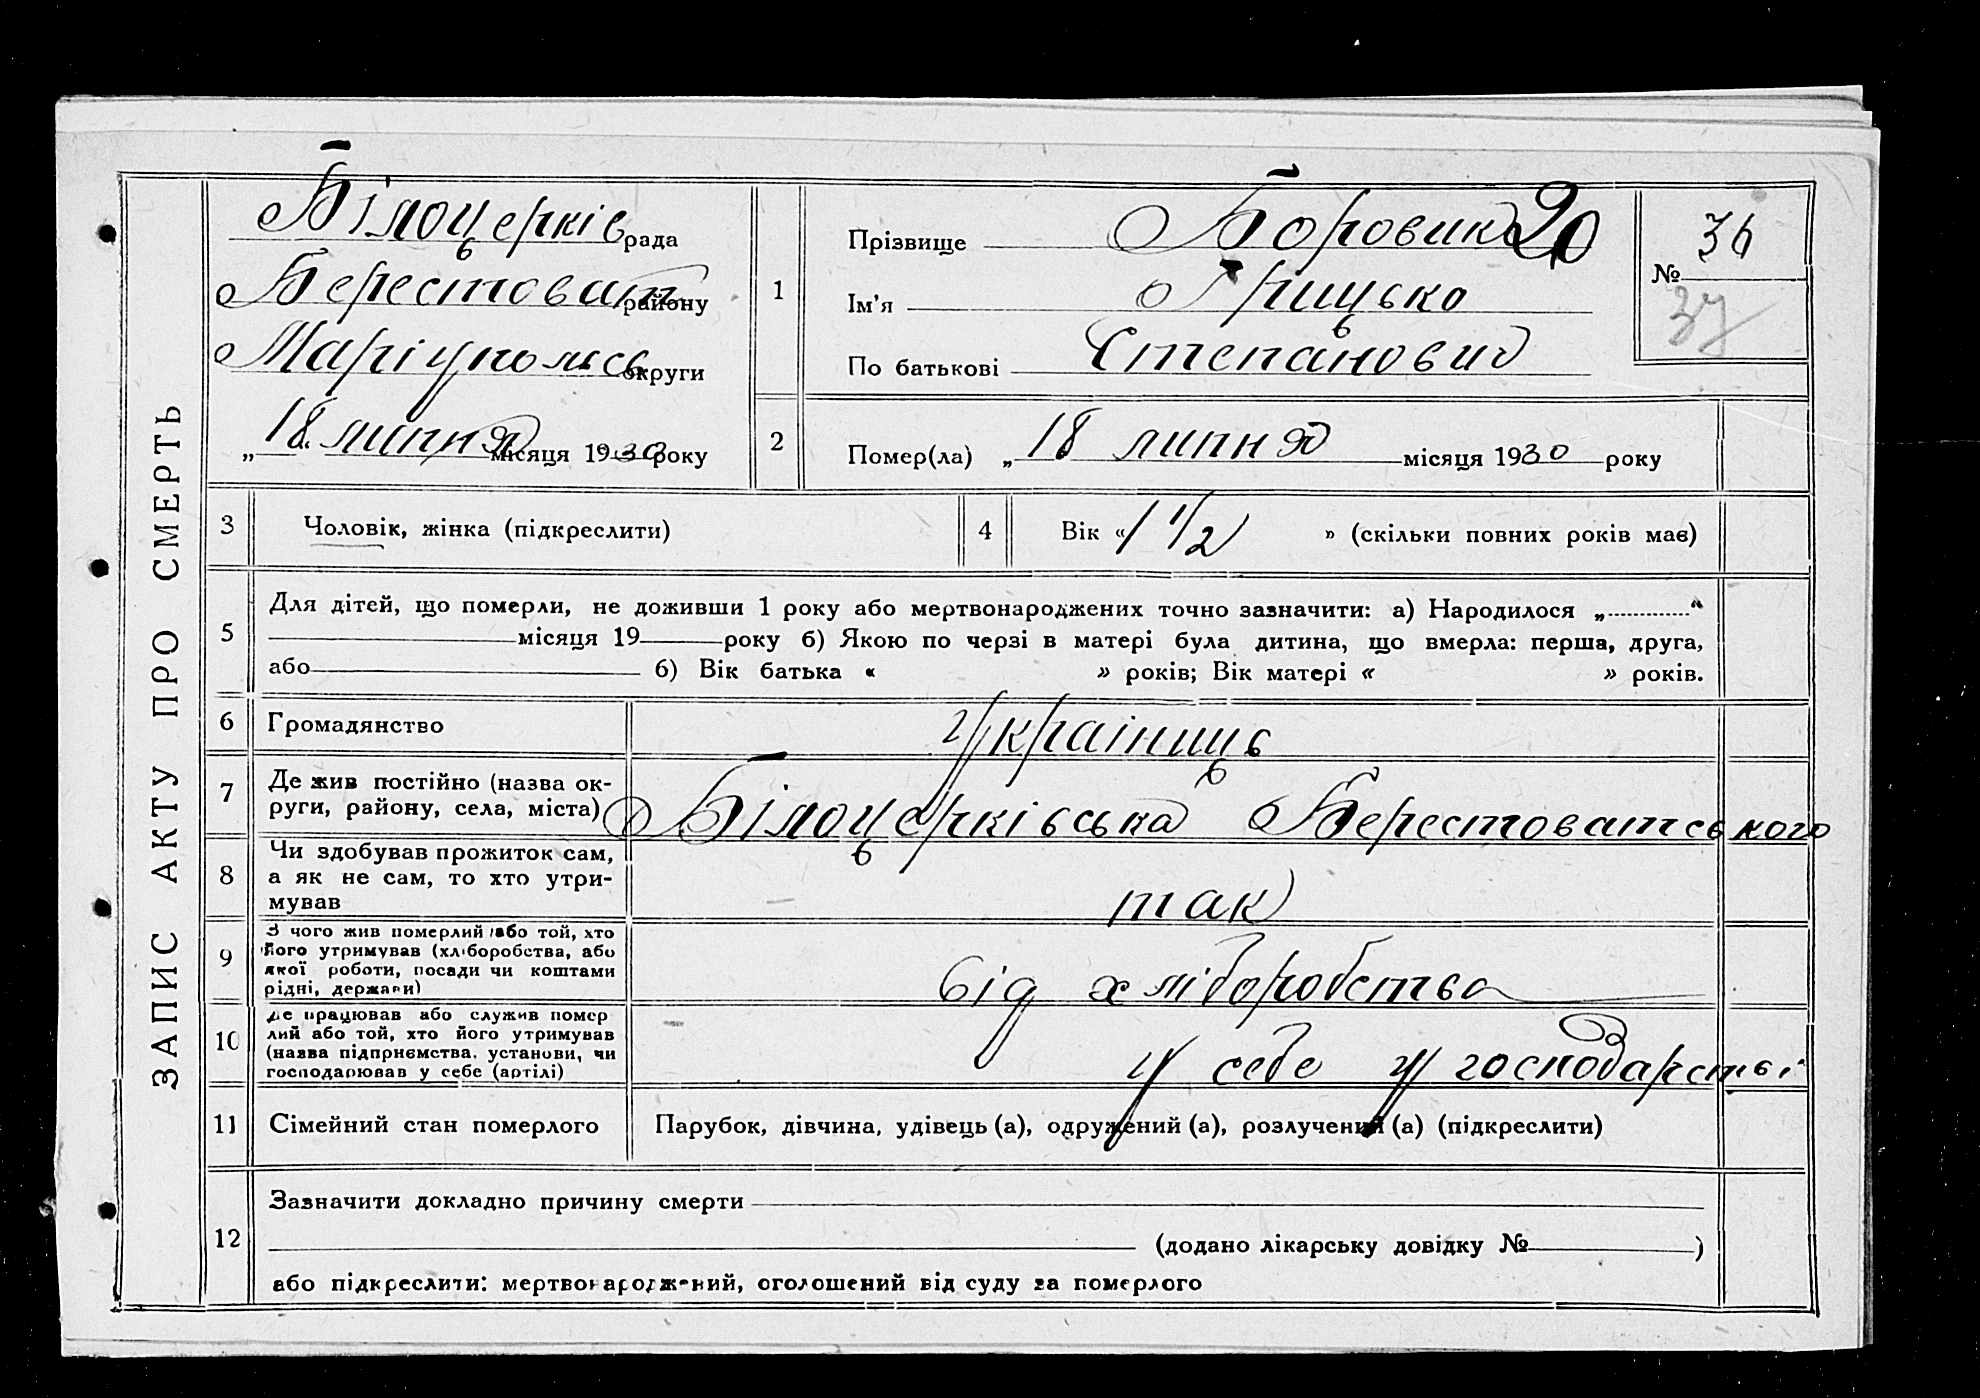 ЗАПИС АКТУ ПРО СМЕРТЬ
Білоцерків рада
Берестоват району
Маріупольсь округи
„18“ липня місяця 1930 року
1
Прізвище Боровик 20
Ім'я Грицько
По батькові Степанович
№ 36
37
2
Помер(ла) „18 липня місяця 1930 року
3 Чоловік, жінка (підкреслити)
4 Вік «1 1/2 » (скільки повних років має)
5
Для дітей, що померли, не доживши 1 року або мертвонароджених точно зазначити: а) Народилося „ “
місяця 19 року б) Якою по черзі в матері була дитина, що вмерла: перша, друга,
або б) Вік батька « » років; Вік матері « » років.
6 Громадянство українць
7 Де жив постійно (назва ок-
руги, району, села, міста) Білоцерківська Берестоватського
8 Чи здобував прожиток сам,
а як не сам, то хто утри-
мував так
9 З чого жив померлий або той, хто
його утримував (хліборобства, або
якої роботи, посади чи коштами
рідні, держави) від хліборобства
10 Де працював або служив помер
лий або той, хто його утримував
(назва підприємства, установи, чи
господарював у себе (артілі) у себе у господарстві
11 Сімейний стан померлого Парубок, дівчина, удівець (а), одружений (а), розлучений (а) (підкреслити)
12
Зазначити докладно причину смерти
(додано лікарську довідку № )
або підкреслити: мертвонароджений, оголошений від суду за померлого